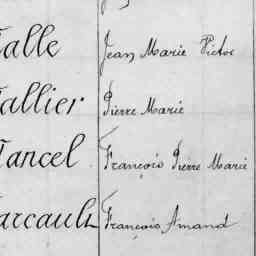 Talle Jean Marie Victor
Tallier Pierre Marie
Tancel François Pierre Marie
François Amand